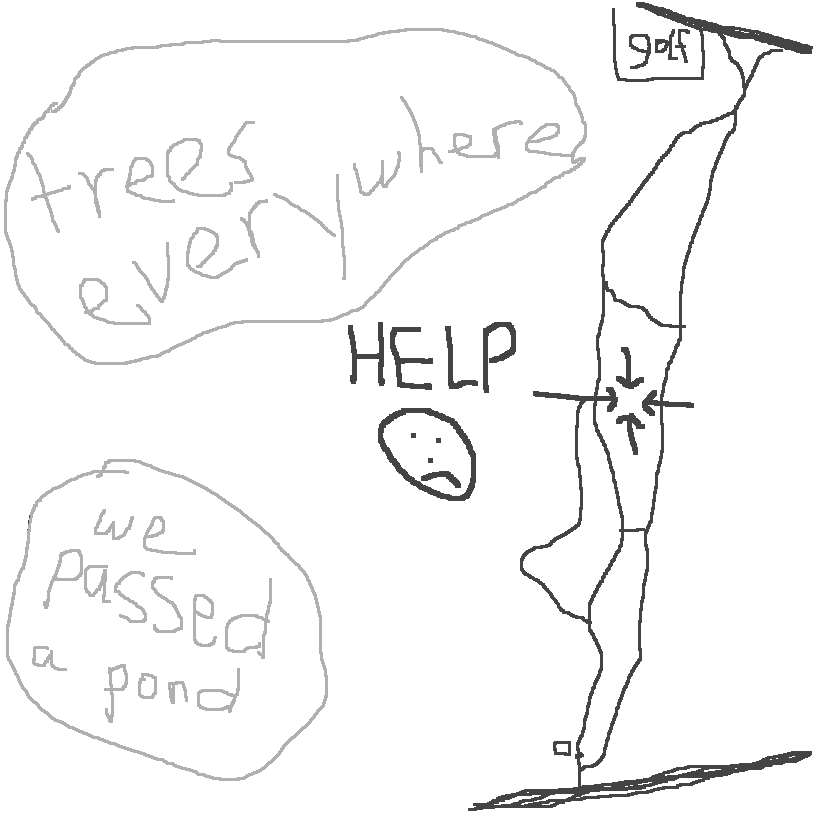 golf
trees
everywhere
HELP
we
passed
a pond